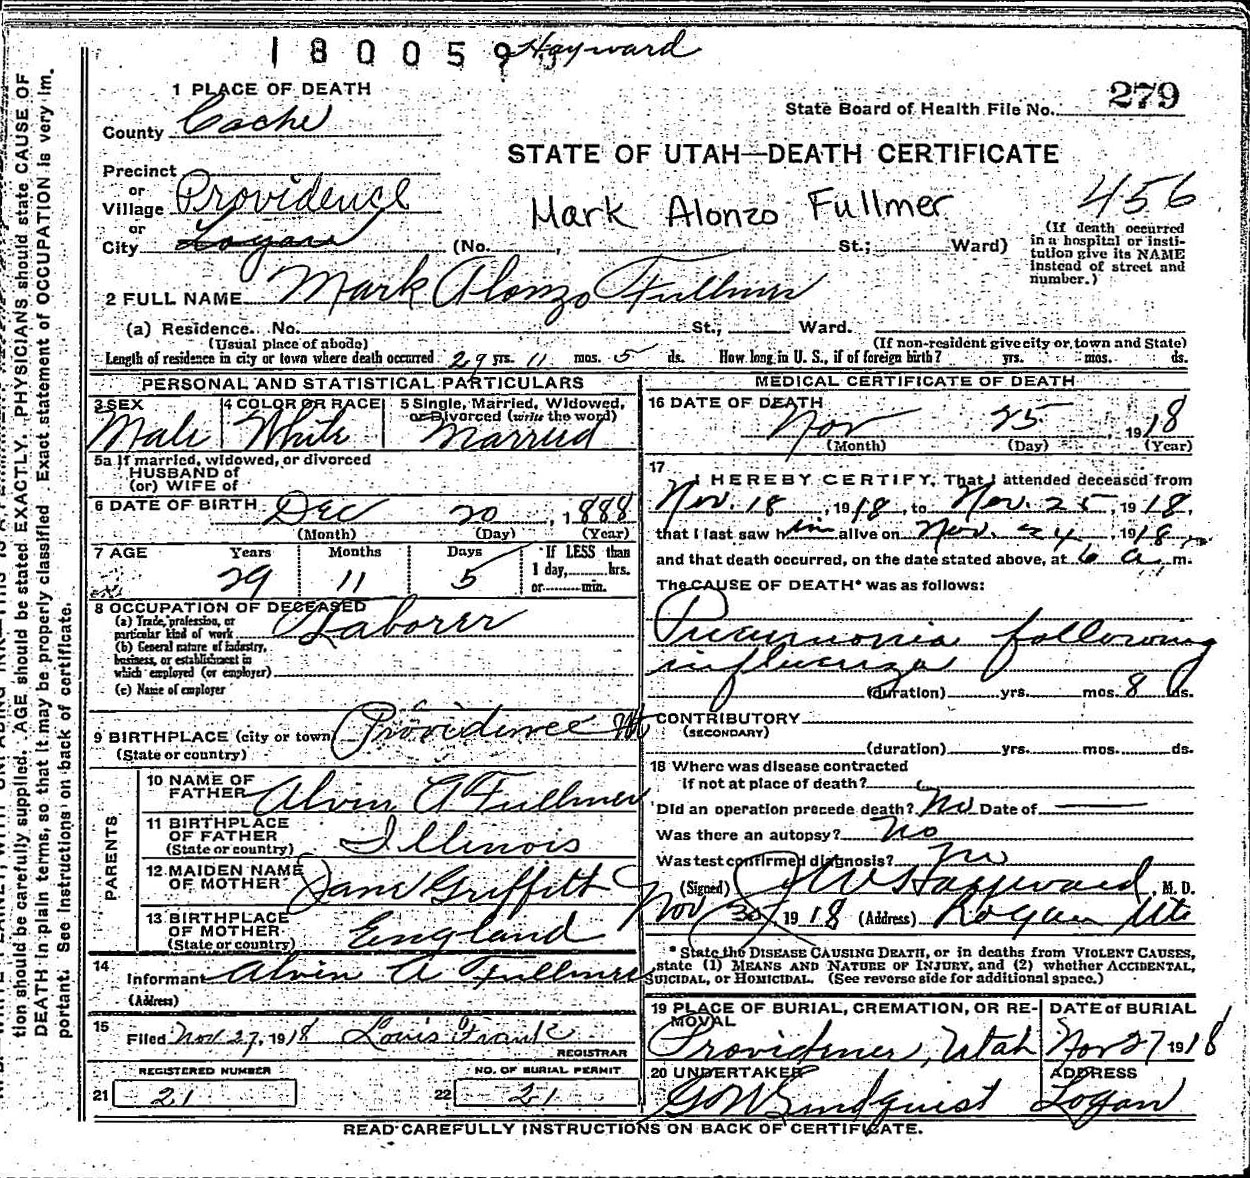 180059 Hayward
1 PLACE OF DEATH
State Board of Health File No. 279
County Cache
STATE OF UTAH—DEATH CERTIFICATE
Precinct
or
Village Providence
456
Mark Alonzo Fullmer
or
City Logan (No. , St.; Ward)
(If death occurred
in a hospital or insti-
tution give its NAME
instead of street and
number.)
2 FULL NAME Mark Alonzo Fullmer
(a) Residence. No. St., Ward.
(Usual place of abode) (If non-resident give city or town and State)
Length of residence in city or town where death occurred 29 yrs. 11 mos. 5 ds. How long in U. S., if of foreign birth? yrs. mos. ds.
PERSONAL AND STATISTICAL PARTICULARS
3 SEX 4 COLOR OR RACE 5 Single, Married, Widowed,
or Divorced (write the word)
Male White Married
5a If married, widowed, or divorced
HUSBAND of
(or) WIFE of
6 DATE OF BIRTH Dec 20, 1888
(Month) (Day) (Year)
7 AGE Years Months Days If LESS than
1 day, hrs.
or min.
29 11 5
8 OCCUPATION OF DECEASED
(a) Trade, profession, or
particular kind of work Laborer
(b) General nature of industry,
business, or establishment in
which employed (or employer)
(c) Name of employer
9 BIRTHPLACE (city or town) Providence Ut
(State or country)
PARENTS
10 NAME OF
FATHER Alvin A Fullmer
11 BIRTHPLACE
OF FATHER
(State or country) Illinois
12 MAIDEN NAME
OF MOTHER Jane Griffith
13 BIRTHPLACE
OF MOTHER
(State or country) England
14
Informant Alvin A Fullmer
(Address)
15
Filed Nov 27, 1918 Louis Frank
REGISTRAR
REGISTERED NUMBER NO. OF BURIAL PERMIT
21 21 22 21
MEDICAL CERTIFICATE OF DEATH
16 DATE OF DEATH
Nov 25, 1918
(Month) (Day) (Year)
17
I HEREBY CERTIFY, That I attended deceased from
Nov. 18, 1918, to Nov. 25, 1918,
that I last saw him alive on Nov. 24, 1918,
and that death occurred, on the date stated above, at 6 a. m.
The CAUSE OF DEATH* was as follows:
Pneumonia following
influenza
(duration) yrs. mos. 8 ds.
CONTRIBUTORY
(SECONDARY)
(duration) yrs. mos. ds.
18 Where was disease contracted
if not at place of death?
Did an operation precede death? No Date of
Was there an autopsy? No
Was test confirmed diagnosis? No
(Signed) Hayward, M. D.
Nov 30, 1918 (Address) Logan Ute
*State the DISEASE CAUSING DEATH, or in deaths from VIOLENT CAUSES,
state (1) MEANS AND NATURE OF INJURY, and (2) whether ACCIDENTAL,
SUICIDAL, or HOMICIDAL. (See reverse side for additional space.)
19 PLACE OF BURIAL, CREMATION, OR RE-
MOVAL
DATE of BURIAL
Providence, Utah Nov 27 1918
20 UNDERTAKER ADDRESS
G W Lindquist Logan
READ CAREFULLY INSTRUCTIONS ON BACK OF CERTIFICATE.
tion should be carefully supplied. AGE should be stated EXACTLY. PHYSICIANS should state CAUSE OF
DEATH in plain terms, so that it may be properly classified. Exact statement of OCCUPATION is very im-
portant. See instructions on back of certificate.